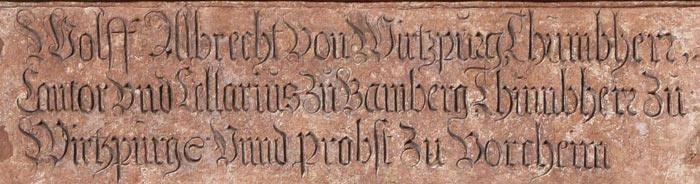 Wolff Albrecht von Wirtzpurg, Thumbherr,
Cantor vnd Cellarius zu Bamberg Thumbherr zu
Wirtzpurg Vnnd Probst zu Vorchenn